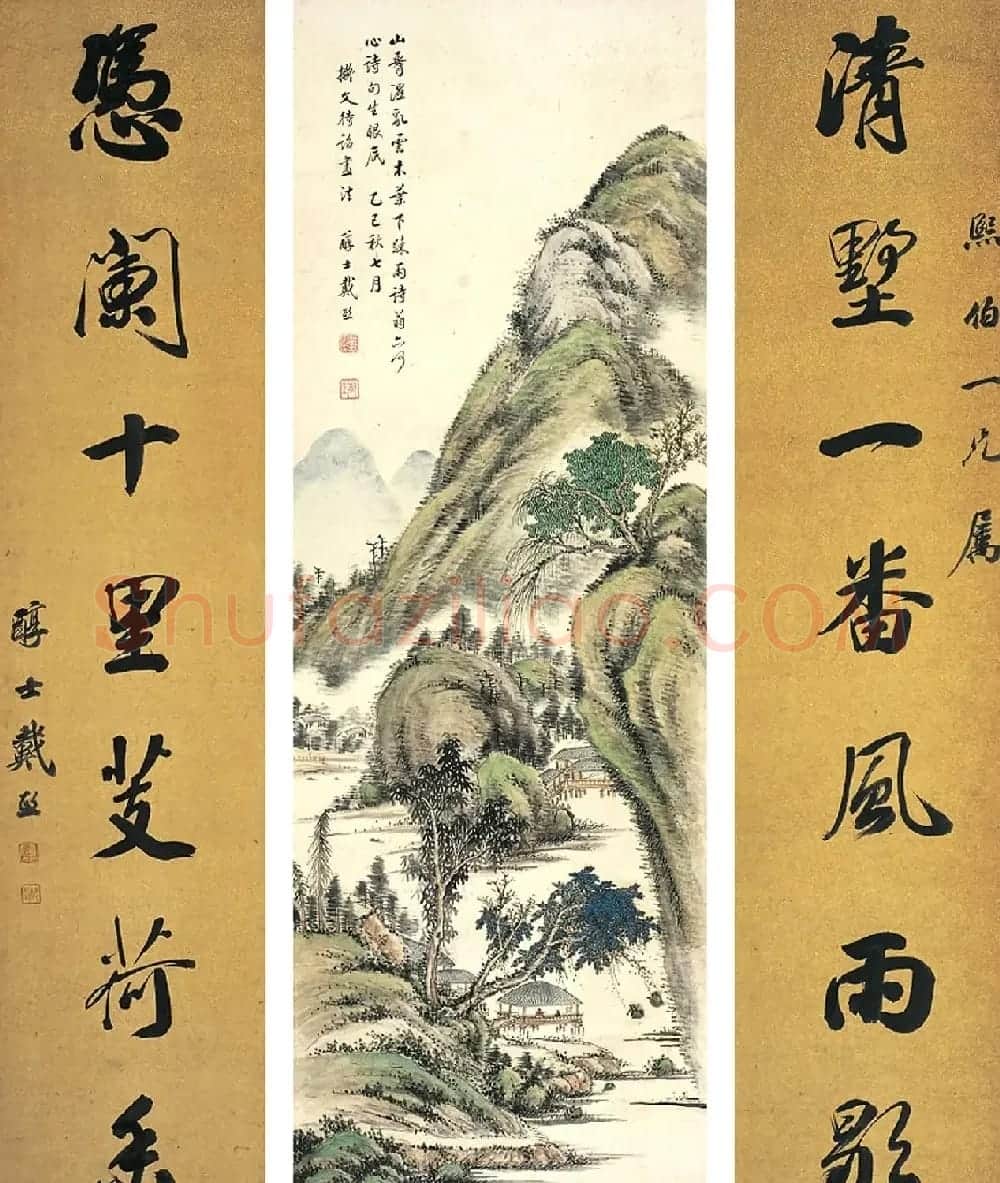 熙伯一兄屬
清墅一番風雨歇
山脊溼乱雲木葉下疎雨詩翁亦何
心詩句生眼底 乙巳秋七月
擬文待詔畫法 醇士戴熙
憑闌十里芰荷香
醇士戴熙
Shufaziliao.com